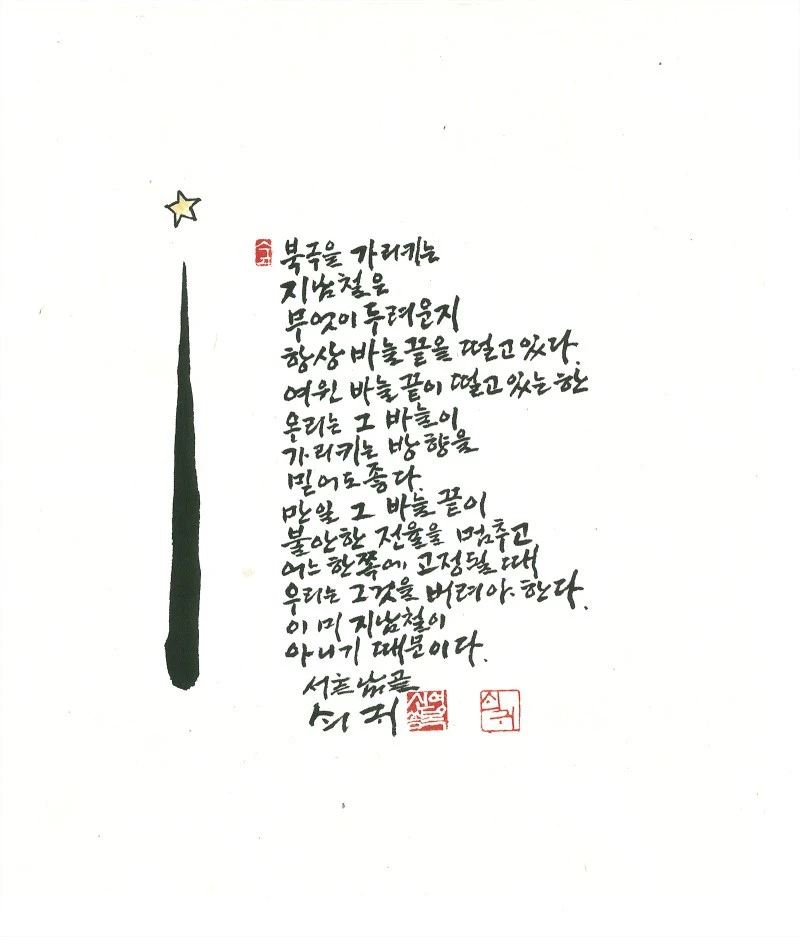 북극을 가리키는
지남철은
무엇이 두려운지
항상 바늘 끝을 떨고 있다.
여윈 바늘 끝이 떨고 있는 한
우리는 그 바늘이
가리키는 방향을
믿어도 좋다.
만일 그 바늘 끝이
불안한 전율을 멈추고
어느 한쪽에 고정될 때
우리는 그것을 버려야 한다.
이미 지남철이
아니기 때문이다.